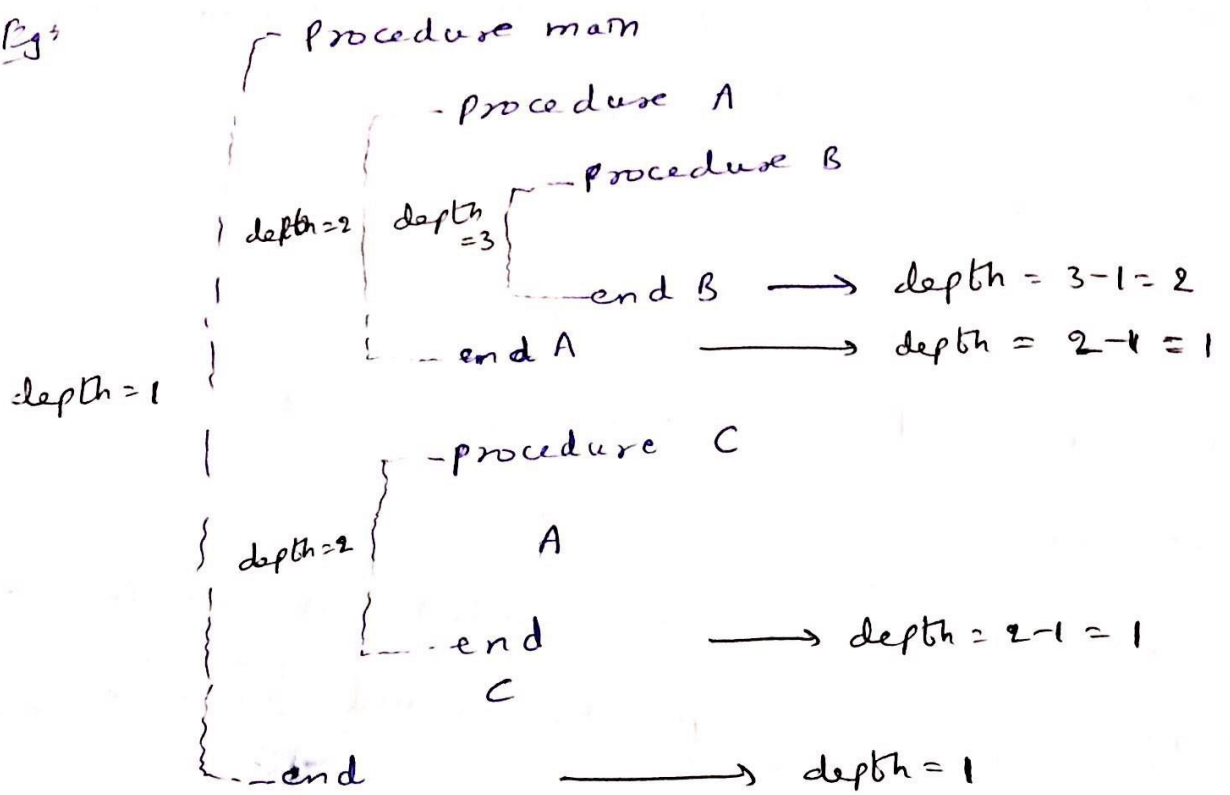 Eg:
Procedure main
- procedure A
- procedure B
depth=2 depth
=3
end B → depth = 3-1 = 2
end A → depth = 2-1 = 1
depth = 1
- procedure C
depth=2 A
end → depth = 2-1 = 1
C
end → depth = 1